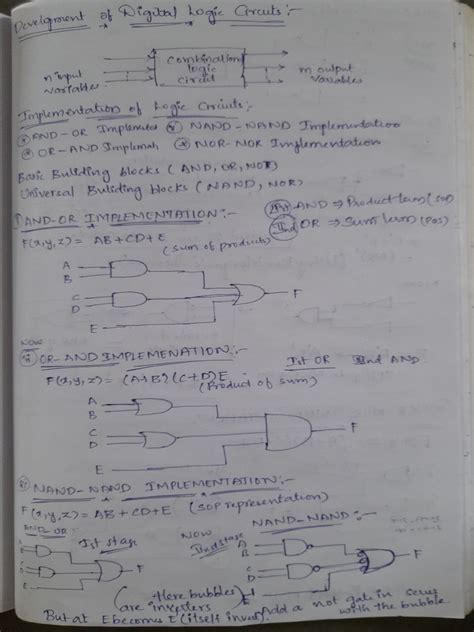 Develepment of Digital Logic Circuts:-
n input variables
combination logic circuit
m output variables
Implementation of Logic Circuits:-
* AND-OR Implemetes * NAND-NAND Implementation
* OR-AND Implemen * NOR-NOR Implementation
Basic Buliding blocks (AND, OR, NOT)
Universal Buliding blocks (NAND, NOR)
AND-OR IMPLEMENTATION:-
Ist AND ⇒ Product term (SOP)
IInd OR ⇒ Sum term (POS)
F(x,y,z) = AB+CD+E
(sum of products)
A
B
C
D
E
F
NOW
ii OR-AND IMPLEMENATION:- Ist OR IInd AND
F(x,y,z) = (A+B)(C+D)E
(Product of sum)
A
B
C
D
E
F
NAND-NAND IMPLEMENTATION:-
F(x,y,z) = AB+CD+E (SOP representation)
AND-OR:-
Ist stage
A
B
C
D
E
F
NOW
IInd stage
NAND-NAND:-
A
B
C
D
E
F
(Here bubbles are inverters)
But at E becomes E (itself invert).
Add a not gate in series with the bubble.